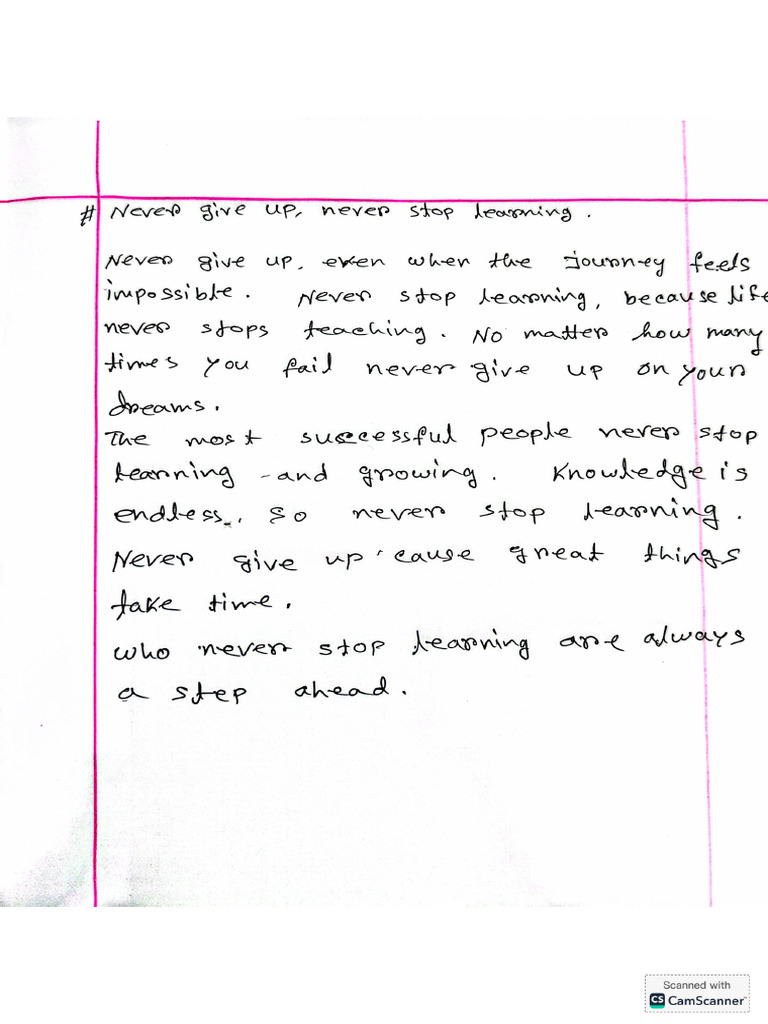 # Never give up, never stop learning.
Never give up, even when the journey feels
impossible. Never stop learning, because life
never stops teaching. No matter how many
times you fail never give up on your
dreams.
The most successful people never stop
learning -and growing. Knowledge is
endless, so never stop learning.
Never give up 'cause great things
take time.
who never stop learning are always
a step ahead.
Scanned with
CS CamScanner